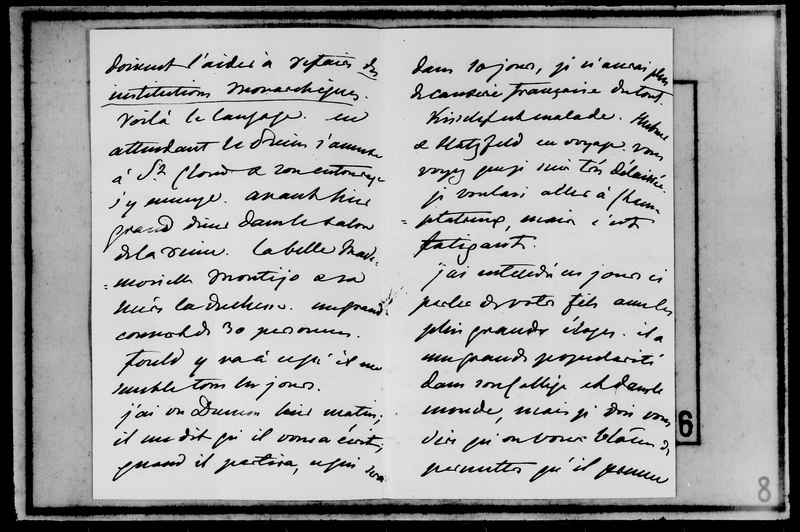 doivent l'aider à refaire des
institutions monarchiques.
Voilà le langage. en
attendant le Prince s'amuse
à St Cloud & son entourage
s'y ennuye. avant hier
grand diner dans le salon
de la reine. la belle Made=
=moiselle Montijo & sa
mère la duchesse. un grand
couvert de 30 personnes.
Fould y va à ce qu'il me
semble tous les jours.
j'ai vu Dumon hier matin;
il me dit qu'il vous a écrit,
quand il partira, ce qui sera
dans 10 jours, je n'aurai plus
de causerie française du tout.
Kisseleff est malade. Hubner
& Hatzfeld en voyage. vous
voyez que je suis très délaissée.
je voulais aller à Cham=
=plâtreux, mais c'est
fatigant.
j'ai entendu ces jours ci
parler de votre fils avec les
plus grands éloges. il a
une grande popularité
dans son collège et dans le
monde, mais je dois vous
dire qu'on vous blâme de
permettre qu'il prenne
6
8